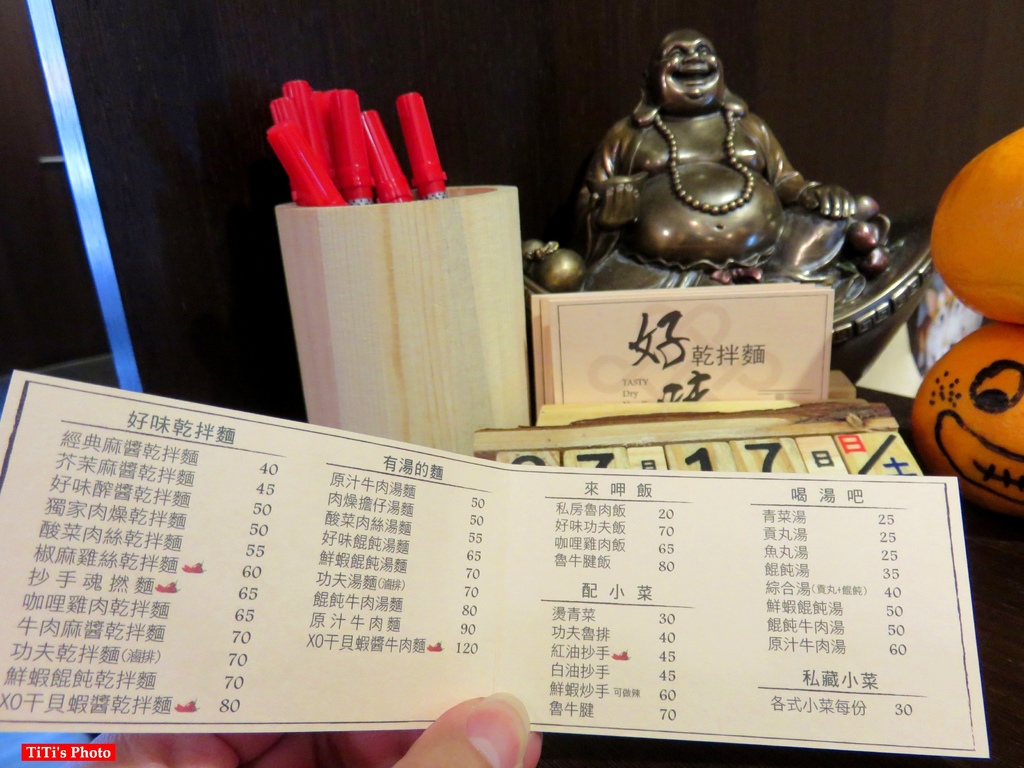 好味
乾拌麵
TASTY
Dry
7月17日日/土
好味乾拌麵
經典麻醬乾拌麵 40
芥茉麻醬乾拌麵 45
好味醡醬乾拌麵 50
獨家肉燥乾拌麵 50
酸菜肉絲乾拌麵 55
椒麻雞絲乾拌麵 60
抄手魂撚麵 65
咖哩雞肉乾拌麵 65
牛肉麻醬乾拌麵 70
功夫乾拌麵(滷排) 70
鮮蝦餛飩乾拌麵 70
XO干貝蝦醬乾拌麵 80
有湯的麵
原汁牛肉湯麵 50
肉燥擔仔湯麵 50
酸菜肉絲湯麵 55
好味餛飩湯麵 65
鮮蝦餛飩湯麵 70
功夫湯麵(滷排) 70
餛飩牛肉湯麵 80
原汁牛肉麵 90
XO干貝蝦醬牛肉麵 120
來呷飯
私房魯肉飯 20
好味功夫飯 70
咖哩雞肉飯 65
魯牛腱飯 80
配小菜
燙青菜 30
功夫魯排 40
紅油抄手 45
白油抄手 45
鮮蝦炒手 可做辣 60
魯牛腱 70
喝湯吧
青菜湯 25
貢丸湯 25
魚丸湯 25
餛飩湯 35
綜合湯(貢丸+餛飩) 40
鮮蝦餛飩湯 50
餛飩牛肉湯 50
原汁牛肉湯 60
私藏小菜
各式小菜每份 30
TiTi's Photo